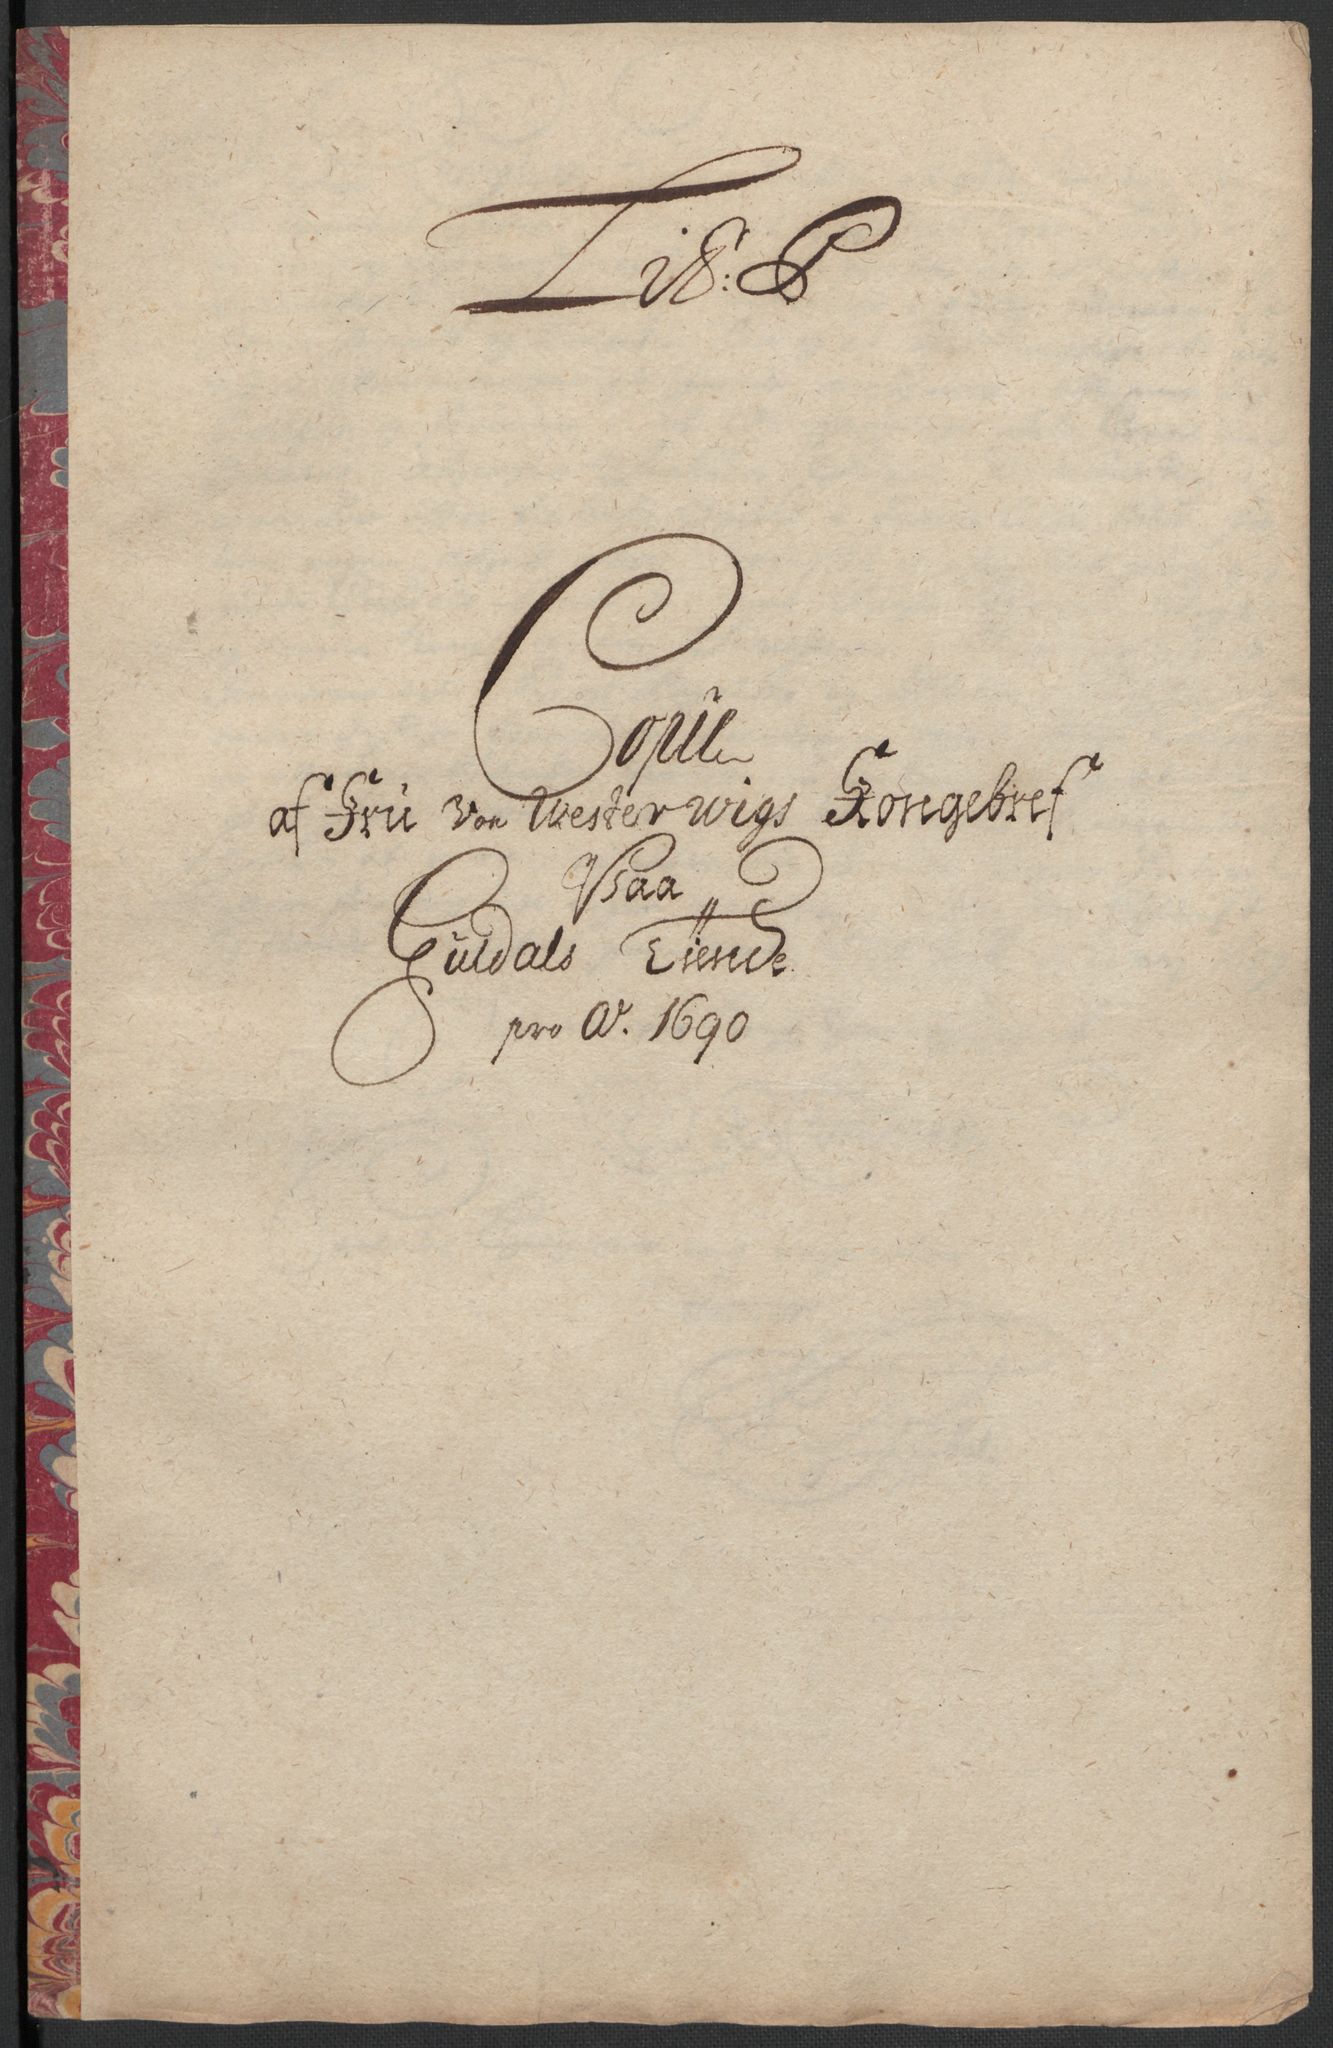 Lit: B
Copie
af Frü Von Westerwigs Kongebref
Paa
Güldals Tiende
pro Ao. 1690